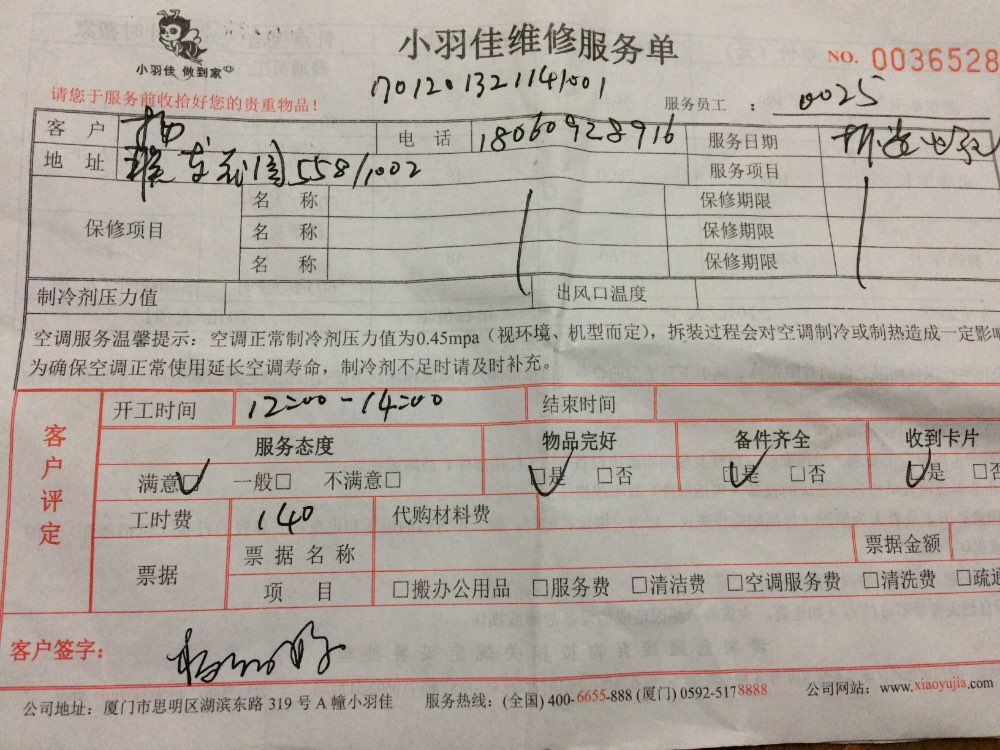 小羽佳维修服务单
NO. 0036528
小羽佳 做到家
701201321141001
请您于服务前收拾好您的贵重物品！
服务员工 ： 0025
客户 杨 电话 18060928916 服务日期
地址 558/1002 服务项目
保修项目 名称 保修期限
名称 保修期限
名称 保修期限
制冷剂压力值 出风口温度
空调服务温馨提示：空调正常制冷剂压力值为0.45mpa（视环境、机型而定），拆装过程会对空调制冷或制热造成一定影响
为确保空调正常使用延长空调寿命，制冷剂不足时请及时补充。
客户评定
开工时间 12:00-14:00 结束时间
服务态度 物品完好 备件齐全 收到卡片
满意□ 一般□ 不满意□ □是 □否 □是 □否 □是 □否
工时费 140 代购材料费
票据 票据名称 票据金额
项目 □搬办公用品 □服务费 □清洁费 □空调服务费 □清洗费 □疏通
客户签字：
公司地址：厦门市思明区湖滨东路 319 号 A 幢小羽佳 服务热线：(全国) 400-6655-888 (厦门) 0592-5178888 公司网站：www.xiaoyujia.com